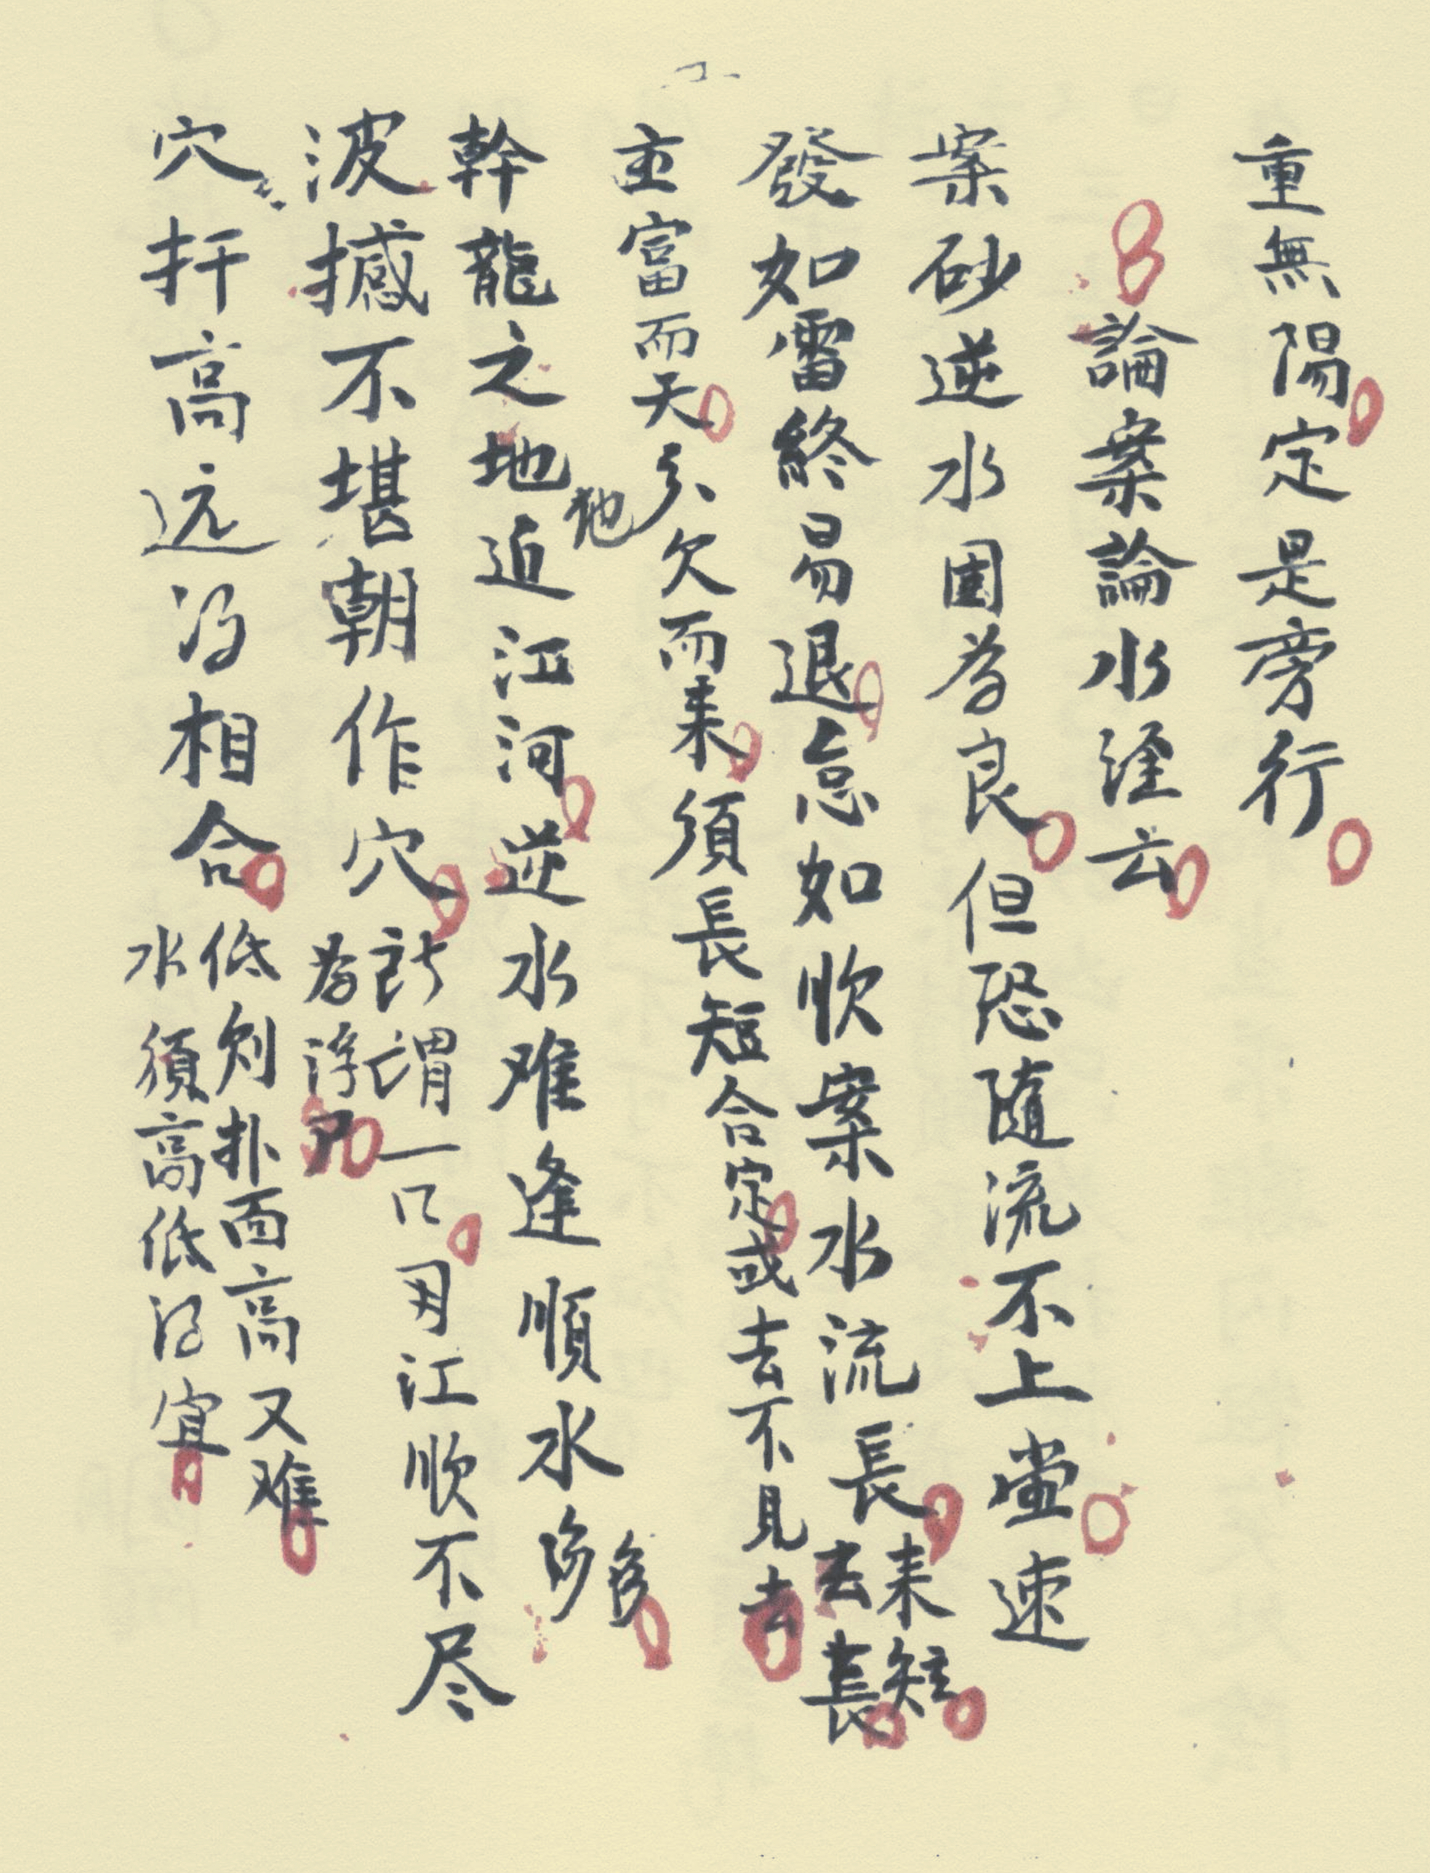 重無陽定是旁行
論案論水經云
案砂逆水固为良但恐隨流不上堂速
發如雷終易退怠如順案水流長來短
去長
主富而夭欠而来須長短合定或去不見去
幹龍之地迫江河逆水难逢順水多
他
波撼不堪朝作穴所謂一口用江順不尽
为浮
穴扦高远须相合低则扑面高又难
水須高低得宜